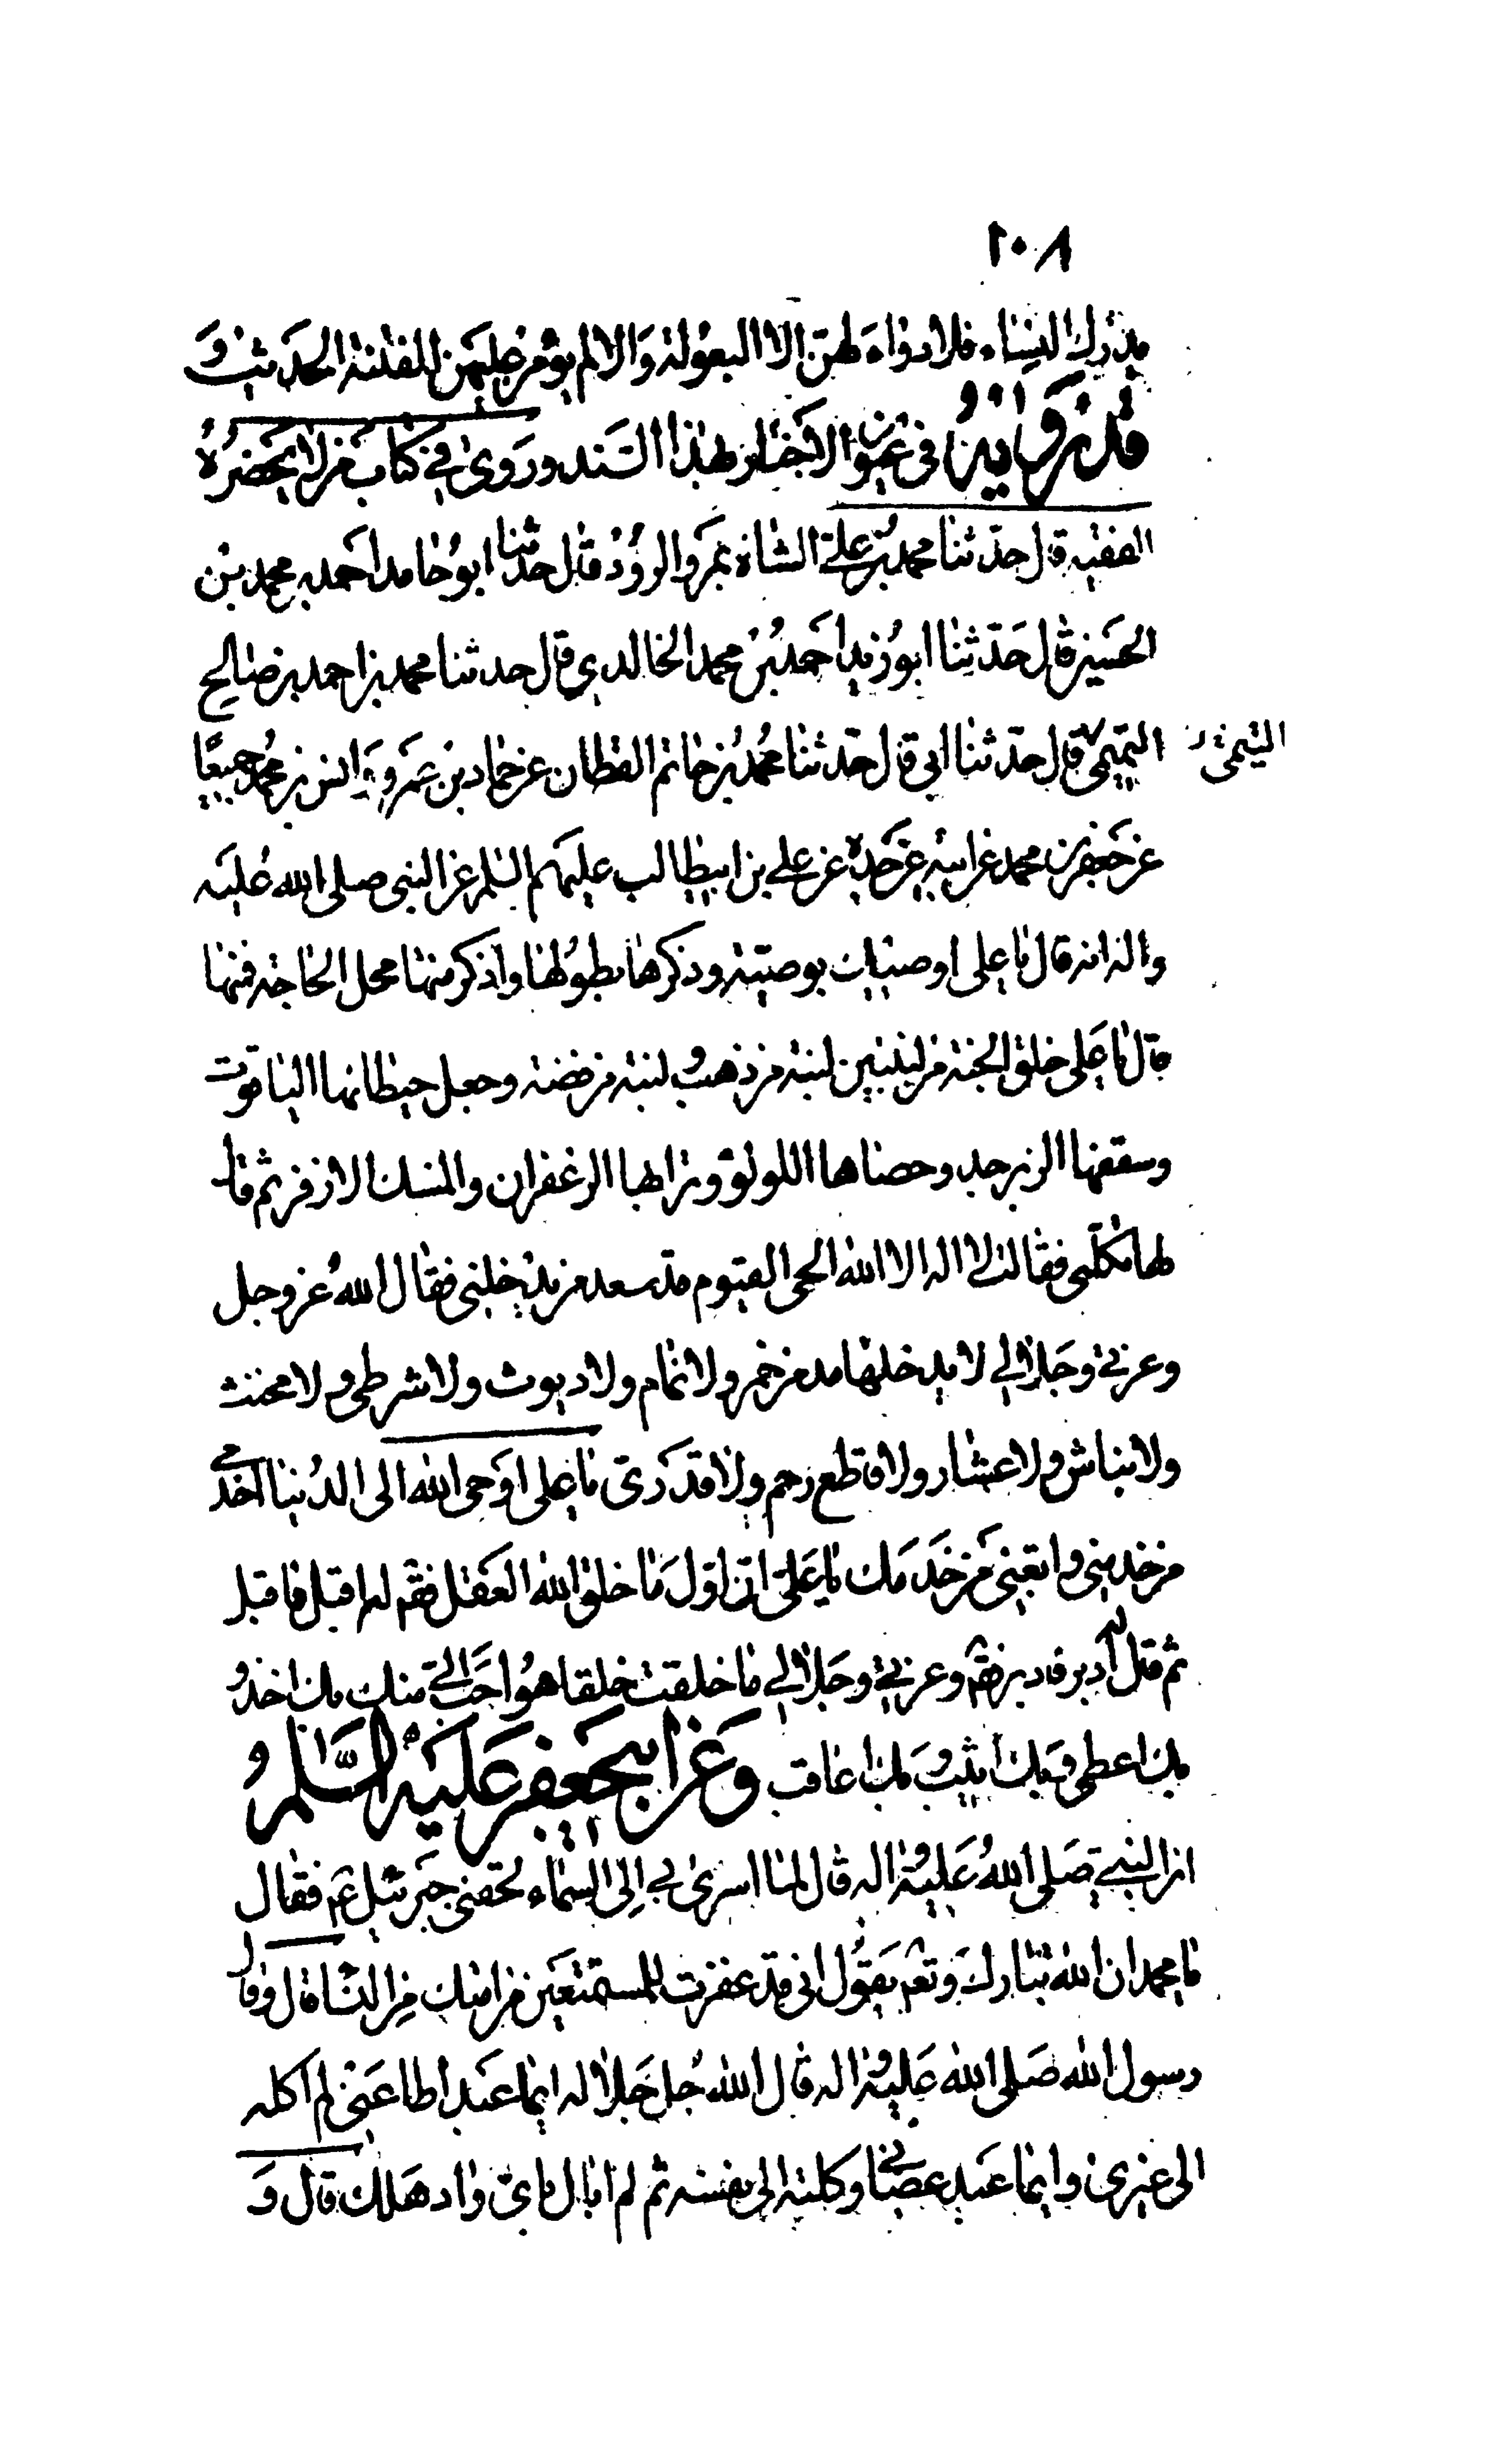 ١٠٨
يدرك النساء فلا دواء لهن الا البعولة والا لم يؤمن عليهن الفتنة الحديث و
قد رواه في عيون الاخبار بهذا السند وروى في كتاب من لا يحضره
الفقيه قال حدثنا محمد بن علي الشاه بمرو الرود قال حدثنا ابو حامد احمد بن محمد بن
الحسين قال حدثنا ابو زيد احمد بن محمد الخالدي قال حدثنا محمد بن احمد بن صالح
التميمي قال حدثنا ابي قال حدثنا محمد بن حاتم القطان عن حماد بن عمرو وانس بن محمد جميعا
التيمي
عن جعفر بن محمد عن ابيه عن جده عن علي بن ابيطالب عليهم السلم عن النبي صلى الله عليه
واله انه قال يا علي اوصيك بوصية وذكرها بطولها واذكر منها محل الحاجة فمنها
قال يا علي خلق الجنة من لبنتين لبنة من ذهب ولبنة من فضة وجعل حيطانها الياقوت
وسقفها الزبرجد وحصاها اللولؤ وترابها الزعفران والمسك الاذفر ثم قال
لها تكلمي فقالت لا اله الا الله الحي القيوم قد سعد من يدخلني فقال الله عز وجل
وعزتي وجلالي لا يدخلها مدمن خمر ولا نمام ولا ديوث ولا شرطي ولا مخنث
ولا نباش ولا عشار ولا قاطع رحم ولا قدري يا علي اوحى الله الى الدنيا اخدمي
من خدمني واتعبي من خدمك يا علي ان اول ما خلق الله العقل فقم له اقبل فاقبل
ثم قال له ادبر فادبر فقم وعزتي وجلالي ما خلقت خلقا هو احب الي منك بك اخذ و
بك اعطي وبك اثيب وبك اعاقب وعن ابيجعفر عليه السلم
ان النبي صلى الله عليه واله قال لما اسرى بي الى السماء لحقني جبرئيل عم فقال
يا محمد ان الله تبارك وتعم يقول اني قد غفرت للمستمتعين من امتك من النساء قال وقال
رسول الله صلى الله عليه واله قال الله جل جلاله ايما عبد اطاعني لم اكله
الى غيري وايما عبد عصاني وكلته الى نفسه ثم لم ابال باي واد هلك قال و